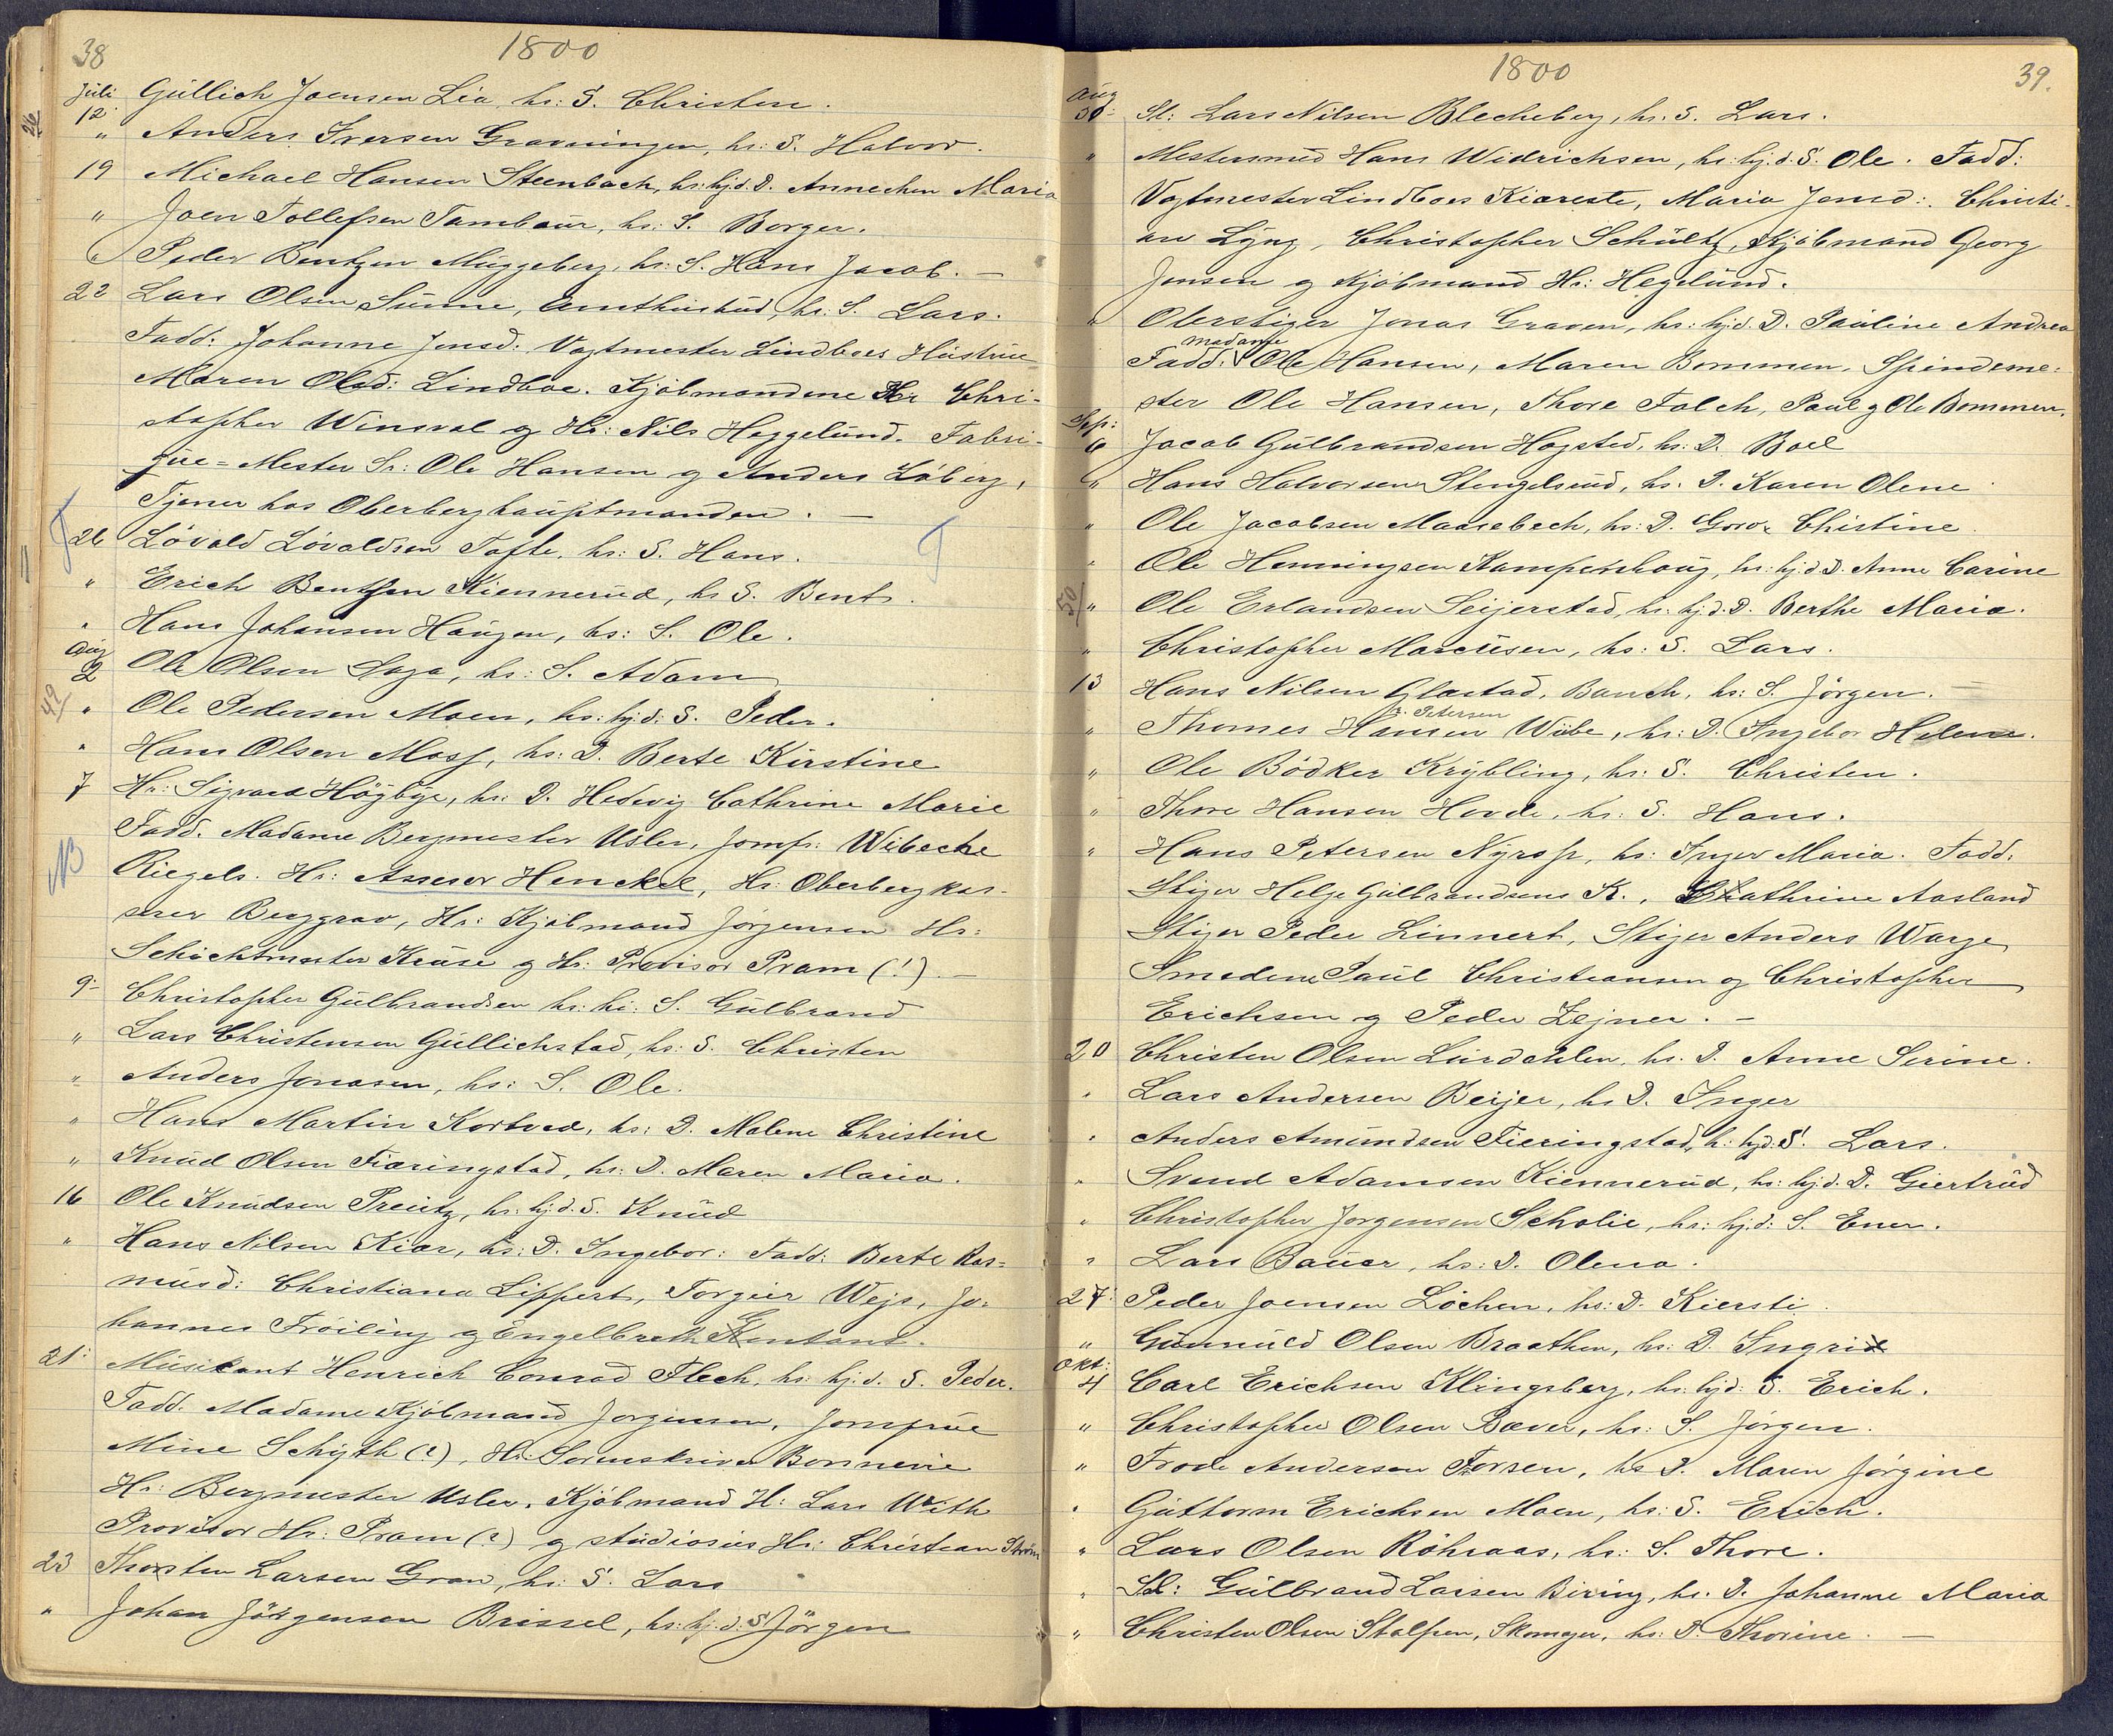 38
1800
Juli
12 Gúllich Joensen Lia, hs: S. Christen.
" Anders Iversen Gravningen, hs: S. Halvor.
19 Michael Hansen Steenbach, hs: hj.d. D. Annechen Maria
" Joen Tollefsen Tambour, hs: S. Borger.
" Peder Bentzen Múggeberg, hs: S. Hans Jacob. —
22 Lars Olsen Súnne, Amthúsbúd, hs: S. Lars.
Fadd: Johanne Jensd: Vagtmester Lindboes Hústrúe
Maren Olsd: Lindboe. Kjöbmændene Hr Chri-
stopher Winsval og Hr: Nils Heggelúnd. Fabri-
qúe-Mester Sr: Ole Hansen og Anders Löberg,
Tjener hos Oberberghaúptmanden. —
26 Lövald Lövaldsen Tofte, hs: S. Hans.
" Erich Bentzen Kiennerúd, hs S. Bent.
" Hans Johansen Haúgen, hs: S. Ole.
Aúg
2 Ole Olsen Saga, hs: S. Adam
49
" Ole Pedersen Moen, hs: hj.d: S. Peder.
" Hans Olsen Moss, hs: D. Berte Kirstine
7 Hr: Sigvard Höybye, hs: D. Hedevig Cathrine Marie
Fadd. Madame Bergmester Usler, Jomfr: Wibecke
NB
Riegels. Hr: Assesor Henckel, Hr: Oberbergkas-
serer Berggrav, Hr: Kjöbmand Jörgensen Hr:
Schichtmester Krúse og Hr: Provisor Pram (!). —
9- Christopher Gúlbrandsen hs: hi: S. Gúlbrand
" Lars Christensen Gúllichstad, hs: S. Christen
" Anders Jonasen, hs: S. Ole.
" Hans Martin Kortved, hs: D. Malene Christine
" Knúd Olsen Fiæringstad, hs: D. Maren Maria.
16 Ole Knúdsen Preútz, hs: hj.d. S. Knúd
" Hans Nilsen Kiær, hs: D. Ingebor: Fadd: Berte Ras-
músd: Christiana Lippert, Torgier Wejs, Jo-
hannes Fröiling og Engelbreth Gentant.
21: Músikant Henrich Conrad Flech, hs: hj.d. S. Peder.
Fadd. Madame Kjöbmand Jörgensen, Jomfrúe
Mine Schÿth (?), Hr: Sorenskriver Bonnevie
Hr: Bergmester Usler. Kjöbmand H: Lars With
Provisor Hr: Pram (?) og stúdiosús Hr: Christian Ström
23 Thorsten Larsen Gran, hs: S. Lars
" Johan Jörgensen Brissel, hs: hj.d: S Jörgen
1800
39.
Aúg
30- St: Lars Nilsen Blecheberg, hs. S. Lars.
" Mestersmed Hans Widrichsen, hs: hj.d. S. Ole. Fadd:
Vagtmester Lindboes Kiæreste, Maria Jensd: Christi-
an Lÿng, Christopher Schúltz, Kjöbmand Georg
Jensen og Kjöbmand Hr: Hegelúnd.
" Oberstiger Jonas Graven, hs: hj.d. D. Paúline Andrea
madame
Fadd: Ole Hansen, Maren Bommen. Spindeme-
ster Ole Hansen, Thore Falch, Paul og Ole Bommen.
Sep:
6 Jacob Gúlbrandsen Hogsted, hs: D. Boel
" Hans Halvorsen Stengelsrúd, hs: D. Karen Olene
" Ole Jacobsen Maasebech, hs: D. Goro Christine
" Ole Henningsen Kampenhaúg, hs: hj.d D. Anne Carine
50
" Ole Erlandsen Seijerstad, hs. hj.d. D. Berthe Maria.
" Christopher Marcúsen, hs: S. Lars.
13 Hans Nilsen Glastad, Bauch, hs: S. Jörgen. —
Petersen
" Thomes Hansen Wibe, hs: D. Ingebor Helene.
" Ole Bödker Krÿbling, hs: S. Christen.
" Thore Hansen Hovde, hs: S. Hans.
" Hans Petersen Nÿrop, hs: Inger Maria. Fadd:
Stiger Helge Gúlbrandsens K., Cathrine Aasland
Stiger Peder Linnert, Stiger Anders Warge
Smedene Paúl Christiansen og Christopher
Erichsen og Peder Zejner. —
20 Christen Olsen Lúrdahlen, hs. D. Anne Serine.
" Lars Andersen Beijer, hs D. Inger
" Anders Amúndsen Fieringstad, h: hj.d: S. Lars.
" Svend Adamsen Kiennerúd, hs: hj.d. D. Giertrúd
" Christopher Jörgensen Scholie, hs: hj.d: S. Ener.
" Lars Baúer, hs: D. Olena.
27: Peder Joensen Löchen, hs: D. Kiersti.
" Gúnnúld Olsen Braathen, hs: D. Ingri
Okt:
4 Carl Erichsen Klingsberg, hs: hj.d: S. Erich.
" Christopher Olsen Bæver, hs: S. Jörgen.
" Frode Andersen Forsen, hs D. Maren Jörgine
" Gúttorm Erichsen Moen, hs: S. Erich.
" Lars Olsen Röhraas, hs: S. Thore.
" Sl: Gúlbrand Larsen Biring, hs. D. Johanne Maria
" Christen Olsen Stalpen, Skomager, hs: D. Thorine. —